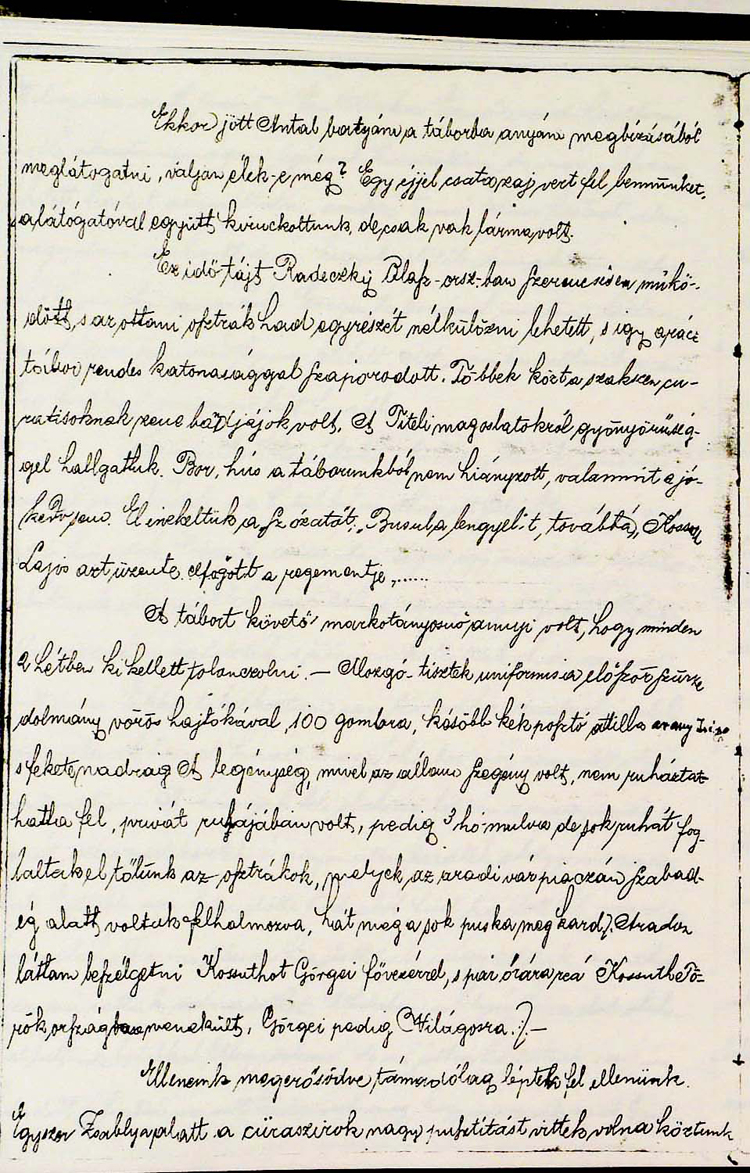 Ekkor jött Antal bartyám a táborba anyám megbizásából
meglátogatni, valjan élek-e még? Egy éjjel csata zaj vert fel bennünket,
a látógatóval együtt kiruckoltunk, de csak vak lárma volt.
Ez idő tájt Radeczkij Olasz-orsz-ban szerencsésen műkö-
dött, s az ottani osztrák had egyrészét nélkülözni lehetett, s igy a rácz
tábor rendes katonasággal szaporodott. Többek közt a szakszen cu-
ratisoknak zene bandjájok volt. A Titeli magoslatokról gyönyörűség-
gel hallgattuk. Bor, hús a táborunkból nem hiányzott, valamint a jó-
kedv sem. El énekeltük a „Szózatát", „Busul a lengyel"-t, továbbá „Kossut
Lajos azt üzente elfogott a regementje „......
A tábort követő markotányosnő annyi volt, hogy minden
2 hétben ki kellett tolonczolni. — Mozgó-tisztek uniformisa először szürke
dolmány vörös hajtókával, 100 gombra, később kék posztó attilla arany
s fekete nadrág A legénység, mivel az állam szegény volt, nem ruháztat-
hatta fel, privát ruhájában volt, pedig 3 hó mulva de sok ruhát fog-
laltak el tőlünk az osztrákok, melyek az aradi vár piaczán szabad-
ég alatt voltak felhalmozva, hát még a sok puska meg kard). Aradon
láttam beszélgetni Kossuthot Görgei fővezérrel, s pár órára reá Kossuth Tö-
rök országba menekült, Görgei pedig Világosra.). —
Elleneink megerősödve támadólag léptek fel ellenünk.
Egyszer Zsablya alatt a cüraszirok nagy pusztitást vittek volna köztünk